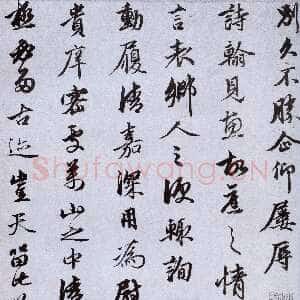 別久不勝企仰屢辱
詩翰見故舊之情
言表鄉人之便輒詢
動履清嘉深用為慰
貴庠密山之中清
古迹崖天
Shufawang.CN